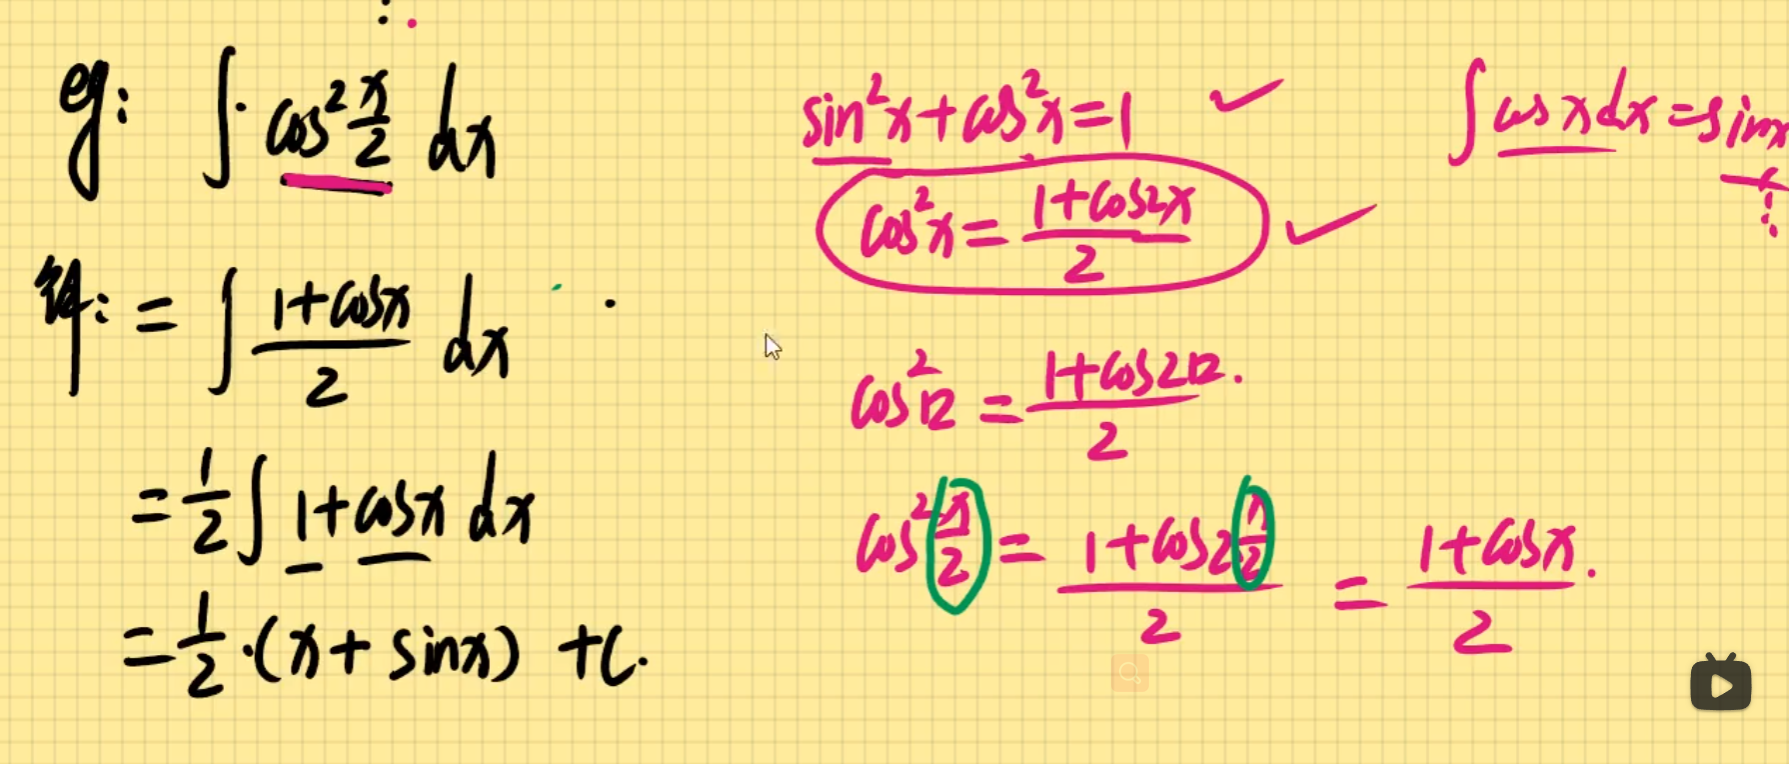 eg: ∫ cos² x/2 dx
解: = ∫ (1+cosx)/2 dx
= 1/2 ∫ 1+cosx dx
= 1/2 ·(x+ sinx) +C.
sin²x+cos²x=1 ✓
cos²x = (1+cos2x)/2 ✓
cos² = (1+cos2)/2
cos² x/2 = (1+cos2 x/2)/2 = (1+cosx)/2.
∫ cosxdx = sinx